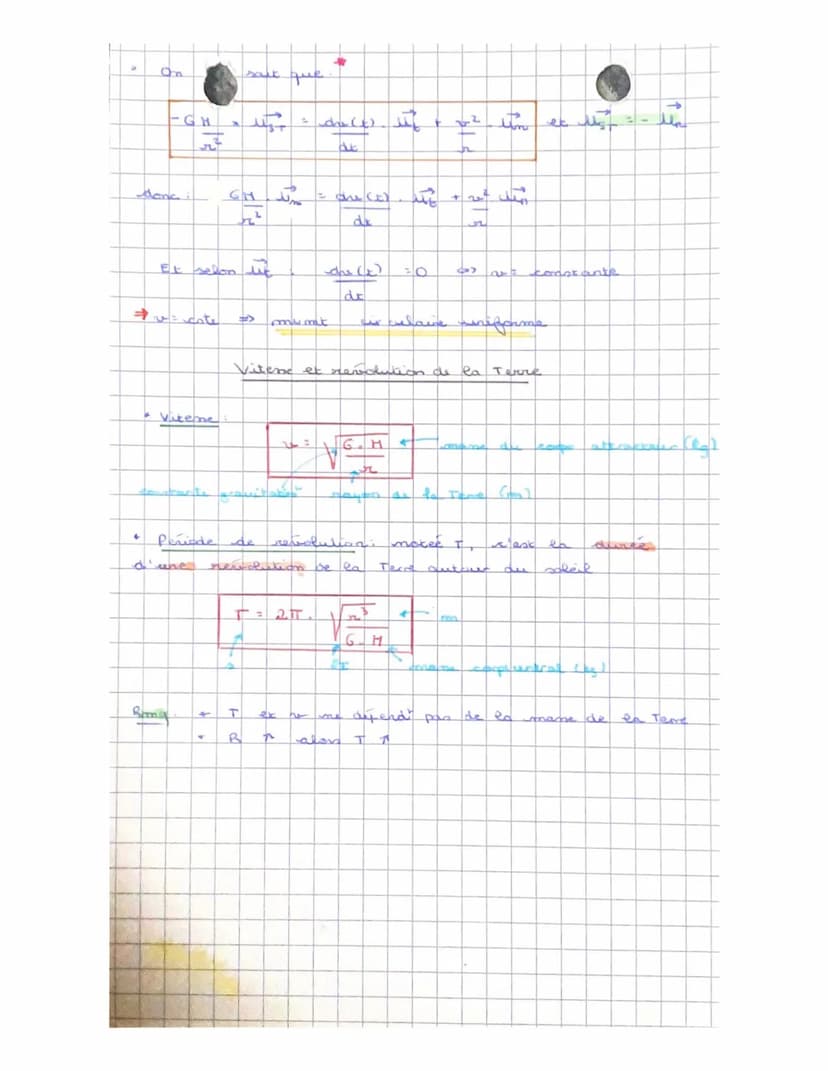 • On sait que *
-GM/r² . u⃗ST = dv(t)/dt . u⃗t + v²/r . u⃗n et u⃗ST = - u⃗n
donc : GM/r² . u⃗n = dv(t)/dt . u⃗t + v²/r u⃗n
Et selon u⃗t : dv(t)/dt = 0 <=> v = constante
⇒ v = cste => mvmt circulaire uniforme
Vitesse et révolution de la Terre
• Vitesse :
v = √(G.M/r) ← masse du corps attracteur (kg)
constante gravitat° rayon de la Terre (m)
• Période de révolution : notée T, c'est la durée
d'une révolution de la Terre autour du soleil
T = 2π . √(r³/G.M) ← m
s masse corps central (kg)
Rmq • T et v ne dépendt pas de la masse de la Terre
• R ↑ alors T ↑